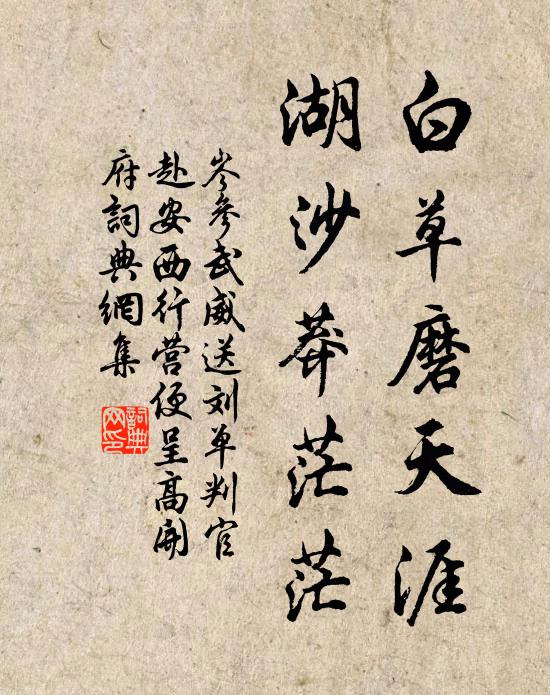 白草磨天涯
湖沙莽茫茫
岑参武威送刘单判官
赴安西行营便呈高開
府詞典網集
詞典
网印